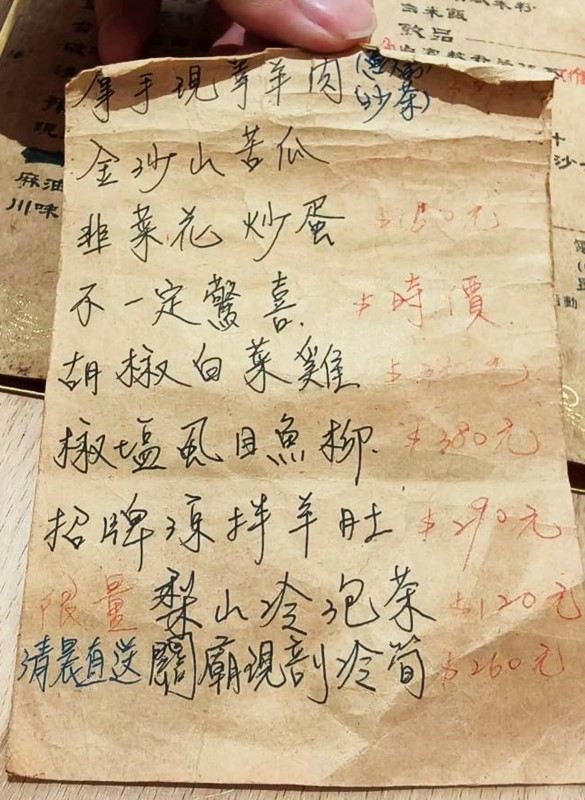 白米飯
飲品
麻油
川味
拿手現宰羊肉
(炒菜)
金沙山苦瓜
韭菜花炒蛋 $180元
不一定驚喜 $時價
胡椒白菜雞
椒塩虱目魚柳 $380元
招牌涼拌羊肚 $290元
限量 梨山冷泡茶 $120元
清晨直送 關廟現剖冷筍 $260元